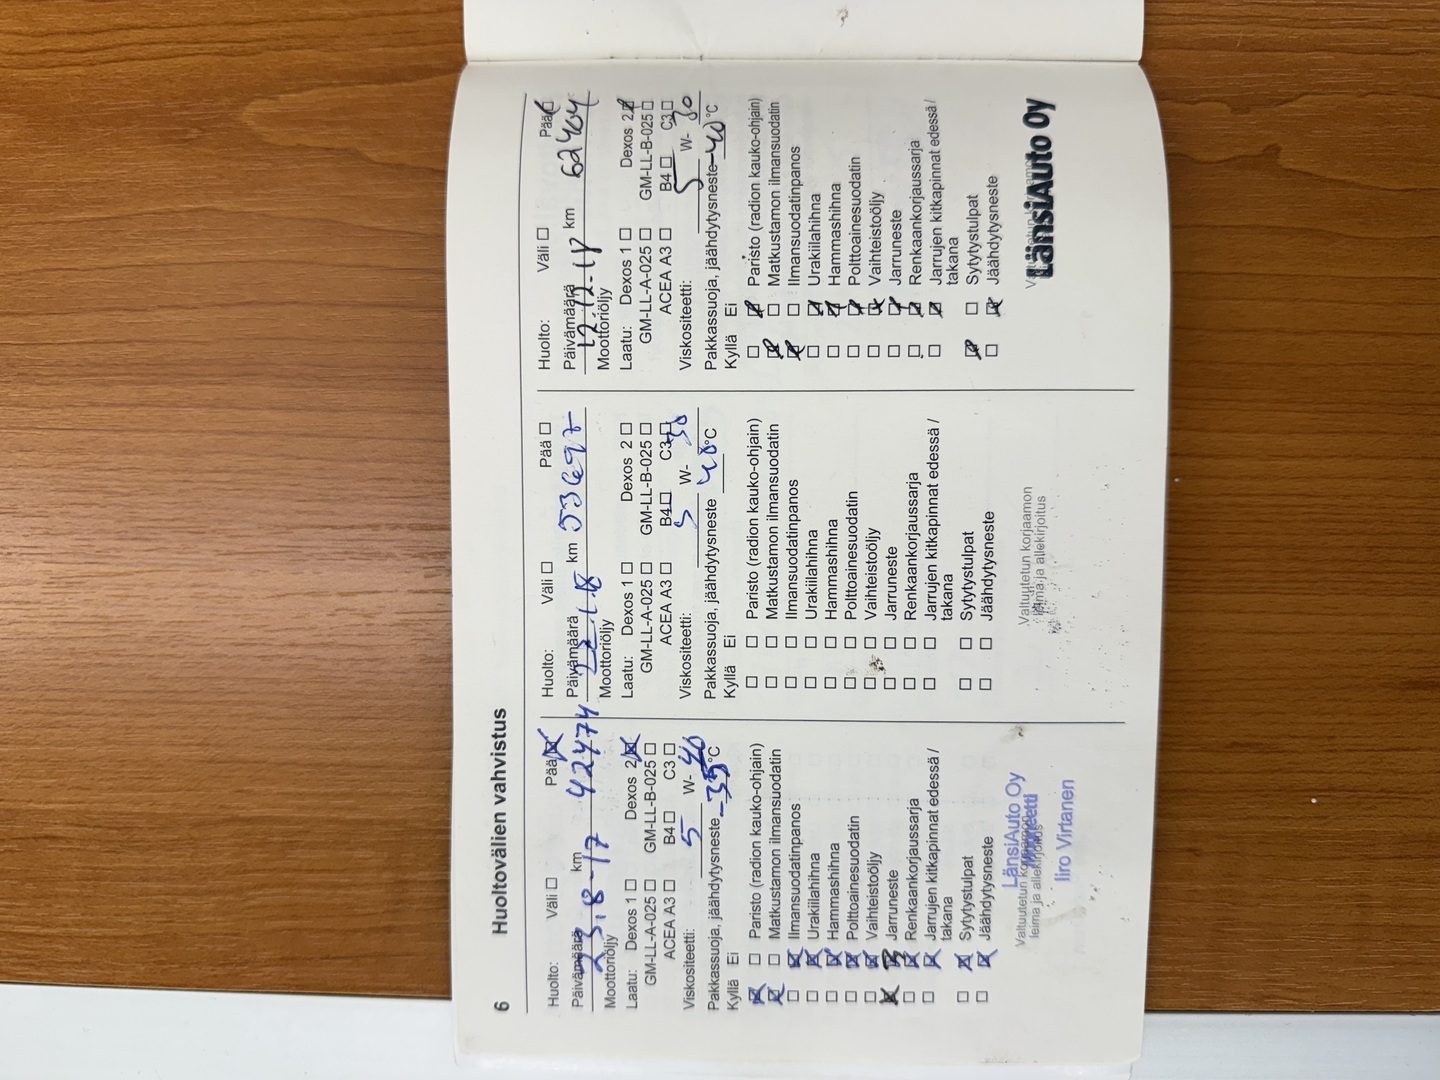 6 Huoltovälien vahvistus
Huolto: Väli ☐ Pää ☒
Päivämäärä 23.8-17 km 42474
Moottoriöljy
Laatu: Dexos 1 ☐ Dexos 2 ☒
GM-LL-A-025 ☐ GM-LL-B-025 ☐
ACEA A3 ☐ B4 ☐ C3 ☐
Viskositeetti: 5 W- 40
Pakkassuoja, jäähdytysneste -35 °C
Kyllä Ei
☒ ☐ Paristo (radion kauko-ohjain)
☒ ☐ Matkustamon ilmansuodatin
☐ ☒ Ilmansuodatinpanos
☐ ☒ Urakiilahihna
☐ ☒ Hammashihna
☐ ☒ Polttoainesuodatin
☐ ☒ Vaihteistoöljy
☒ ☒ Jarruneste
☐ ☒ Renkaankorjaussarja
☐ ☒ Jarrujen kitkapinnat edessä /
takana
☐ ☒ Sytytystulpat
☐ ☒ Jäähdytysneste
Valtuutetun korjaamon
leima ja allekirjoitus
LänsiAuto Oy
Iiro Virtanen
Huolto: Väli ☐ Pää ☐
Päivämäärä km 53697
Moottoriöljy
Laatu: Dexos 1 ☐ Dexos 2 ☐
GM-LL-A-025 ☐ GM-LL-B-025 ☐
ACEA A3 ☐ B4 ☐ C3 ☐
Viskositeetti: 5 W- 30
Pakkassuoja, jäähdytysneste 40 °C
Kyllä Ei
☐ ☐ Paristo (radion kauko-ohjain)
☐ ☐ Matkustamon ilmansuodatin
☐ ☐ Ilmansuodatinpanos
☐ ☐ Urakiilahihna
☐ ☐ Hammashihna
☐ ☐ Polttoainesuodatin
☐ ☐ Vaihteistoöljy
☐ ☐ Jarruneste
☐ ☐ Renkaankorjaussarja
☐ ☐ Jarrujen kitkapinnat edessä /
takana
☐ ☐ Sytytystulpat
☐ ☐ Jäähdytysneste
Valtuutetun korjaamon
leima ja allekirjoitus
Huolto: Väli ☐ Pää ☒
Päivämäärä 12-12-18 km 62404
Moottoriöljy
Laatu: Dexos 1 ☐ Dexos 2 ☒
GM-LL-A-025 ☐ GM-LL-B-025 ☐
ACEA A3 ☐ B4 ☐ C3 ☐
Viskositeetti: 5 W- 30
Pakkassuoja, jäähdytysneste -40 °C
Kyllä Ei
☐ ☒ Paristo (radion kauko-ohjain)
☒ ☐ Matkustamon ilmansuodatin
☒ ☐ Ilmansuodatinpanos
☐ ☒ Urakiilahihna
☐ ☒ Hammashihna
☐ ☒ Polttoainesuodatin
☐ ☒ Vaihteistoöljy
☐ ☒ Jarruneste
☐ ☒ Renkaankorjaussarja
☐ ☒ Jarrujen kitkapinnat edessä /
takana
☒ ☐ Sytytystulpat
☐ ☒ Jäähdytysneste
LänsiAuto Oy